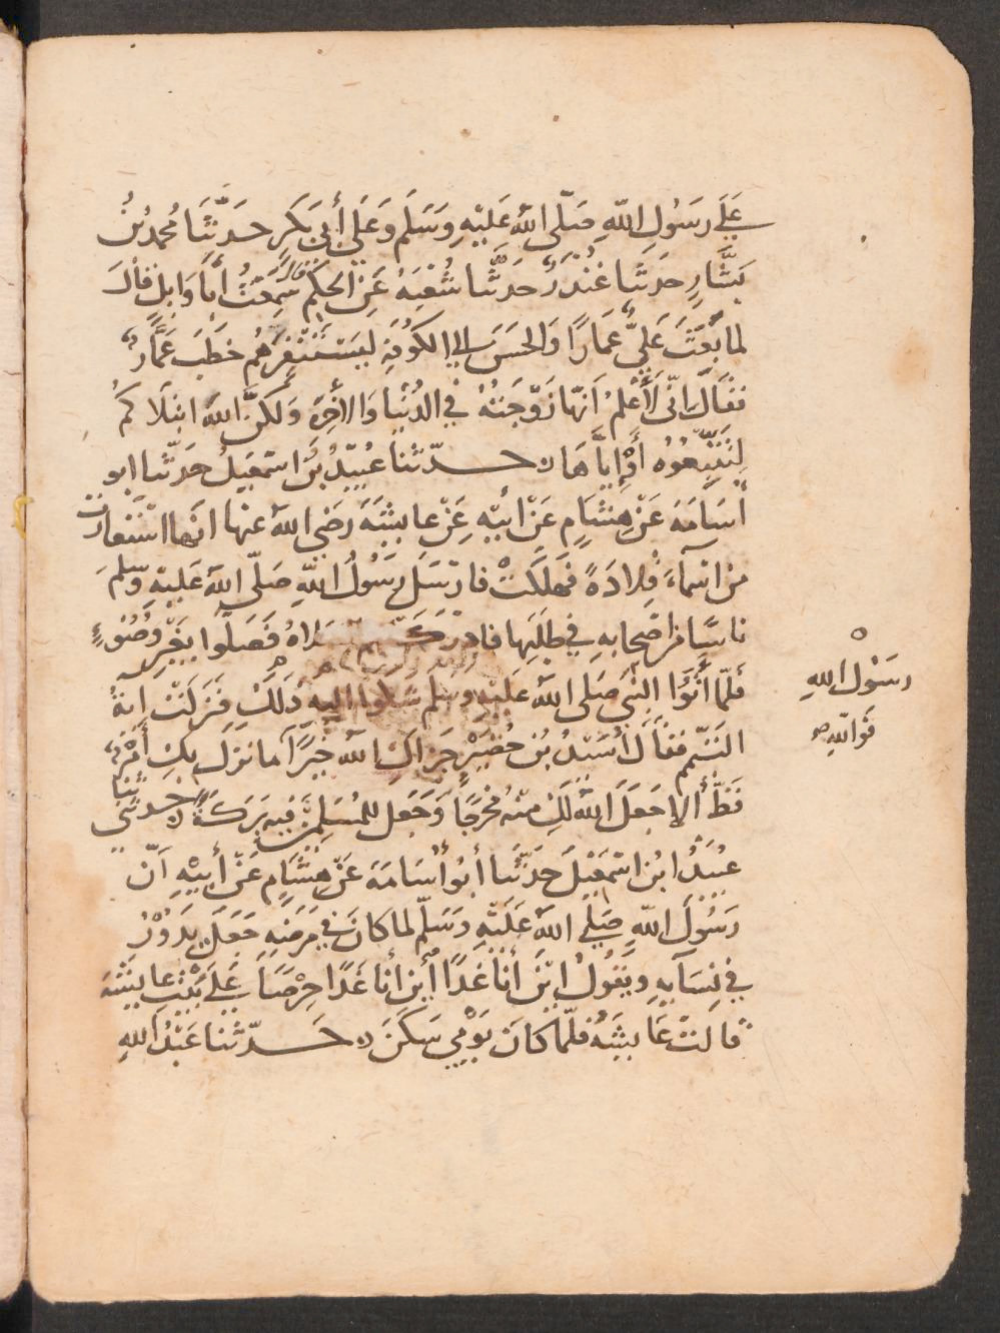 عَلَى رَسُولِ اللّهِ صَلّى اللّهُ عَلَيْهِ وَسَلَّم وَعَلَى أَبِى بَكرٍ حَدَّثَنَا مُحمدُ بْنُ
بَشَّارٍ حَدثَنَا غُنْدَرٌ حَدَثَّنا شُعْبَةُ عَنِ الحكَمِ قال سَمِعْتُ أَبَا وَائِلٍ قالَ
لما بَعَثَ عَلِىٌّ عَمَّارًا وَالحَسَنَ إلى الكُوفةِ ليَسْتَنْفِرَهُم خَطَبَ عَمَّارٌ
فقَالَ إنّى لَأَعْلمُ أنّهَا زَوْجَتُهُ فِي الدُنْيَا وَالأَخِرَةِ وَلكنَّ اللّهَ ابْتَلَاكُمْ
لِتَتَّبِعُوهُ أَوْ إِيَّاهَا حدّثنا عُبَيْدُ بْنُ اسْمعِيلَ حَدَثّنا ابو
أُسَامَةَ عَنْ هِشَامٍ عَنْ ابيْهِ عَنْ عايشَةَ رَضِىَ اللّهُ عنها انَها اسْتَعارَت
مِنْ اسْمآءَ قِلادَةً فَهَلَكَتْ فارْسَلَ رَسُولُ اللّهِ صَلّى اللّهُ عَلَيْهِ وَسّلمَ
ناسًا مِنْ اصْحابهِ فِي طَلَبِها فادْرَكَتْهم الصَلاةُ فَصَلّوا بغَيْرِ وُضُوءٍ
فلَمّا أَتَوُا النَّبِىَّ صَلى اللّهُ عَلَيْهِ وسلم شَكَوْا اليهِ ذلِكَ فنَزَلَتْ ايَةُ
التَيَمّمِ فقَالَ أُسَيْدُ بْنُ حُضَيْرٍ جَزَاكِ اللّهُ خَيْرًا مَا نزلَ بِكِ أمْرٌ
قَطُّ إلا جَعَلَ اللّهُ لَكِ مِنْهُ مَخْرجًا وَجَعَلَ للمُسْلِمِينَ فيهِ بَرَكَةً حدثنى ثنا
عُبَيْدُ ابْنُ اسْمعِيْلَ حَدّثَنَا أَبُو أُسَامَةَ عَنْ هِشَامٍ عَنْ أبِيْهِ اَنّ
رَسُولَ اللّهِ صَلى اللّهُ عَلَيْهِ وَسَلّمَ لما كانَ فِي مَرَضِهِ جَعَلَ يَدُوْرُ
في نِسَآيهِ وَيَقُولُ ايْنَ أنا غدًا أيْنَ أنَا غَدًا حِرْصًا عَلَى بَيْتِ عايشَةَ
قالَتْ عَايشَةُ فلَمّا كانَ يَوْمِي سَكَنَ حَدّثنا عَبْدُ اللهِ
رَسُوْلَ اللّهِ
فَوَاللّهِ